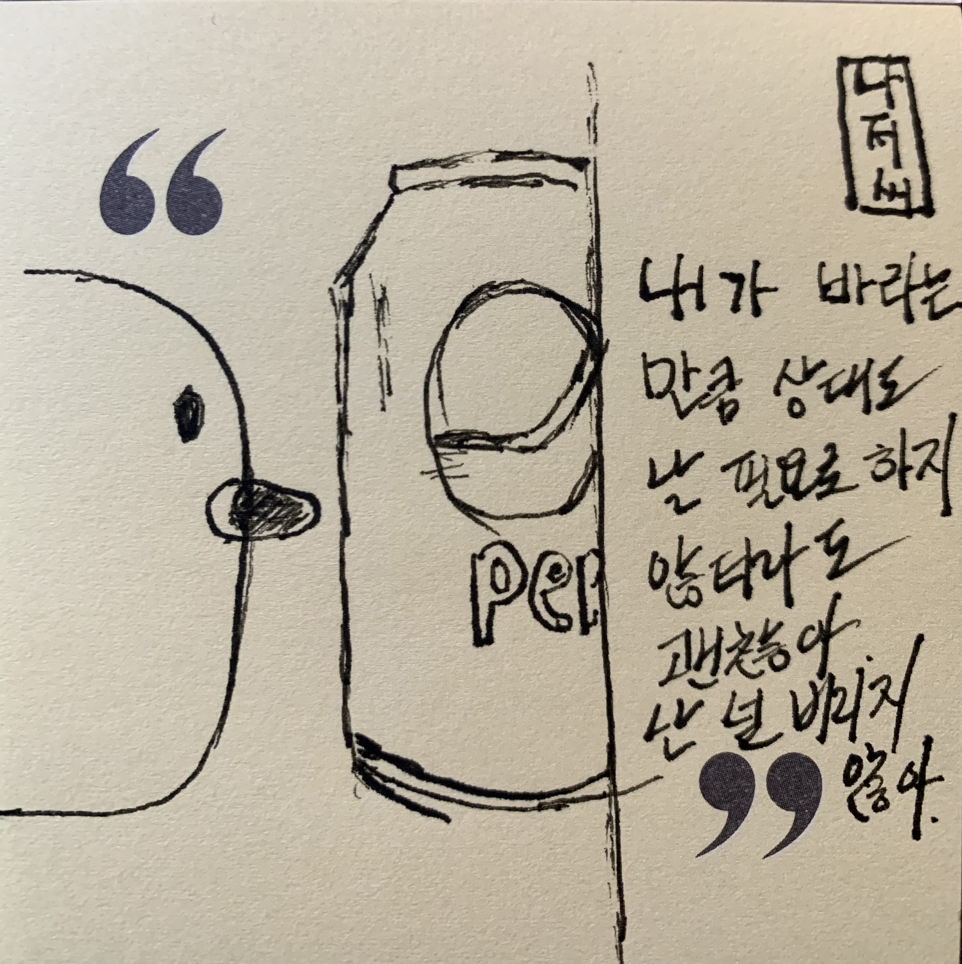 나저씨
내가 바라는
만큼 상대도
날 필요로 하지
않더라도
괜찮아.
난 널 버리지
않아.
Pep